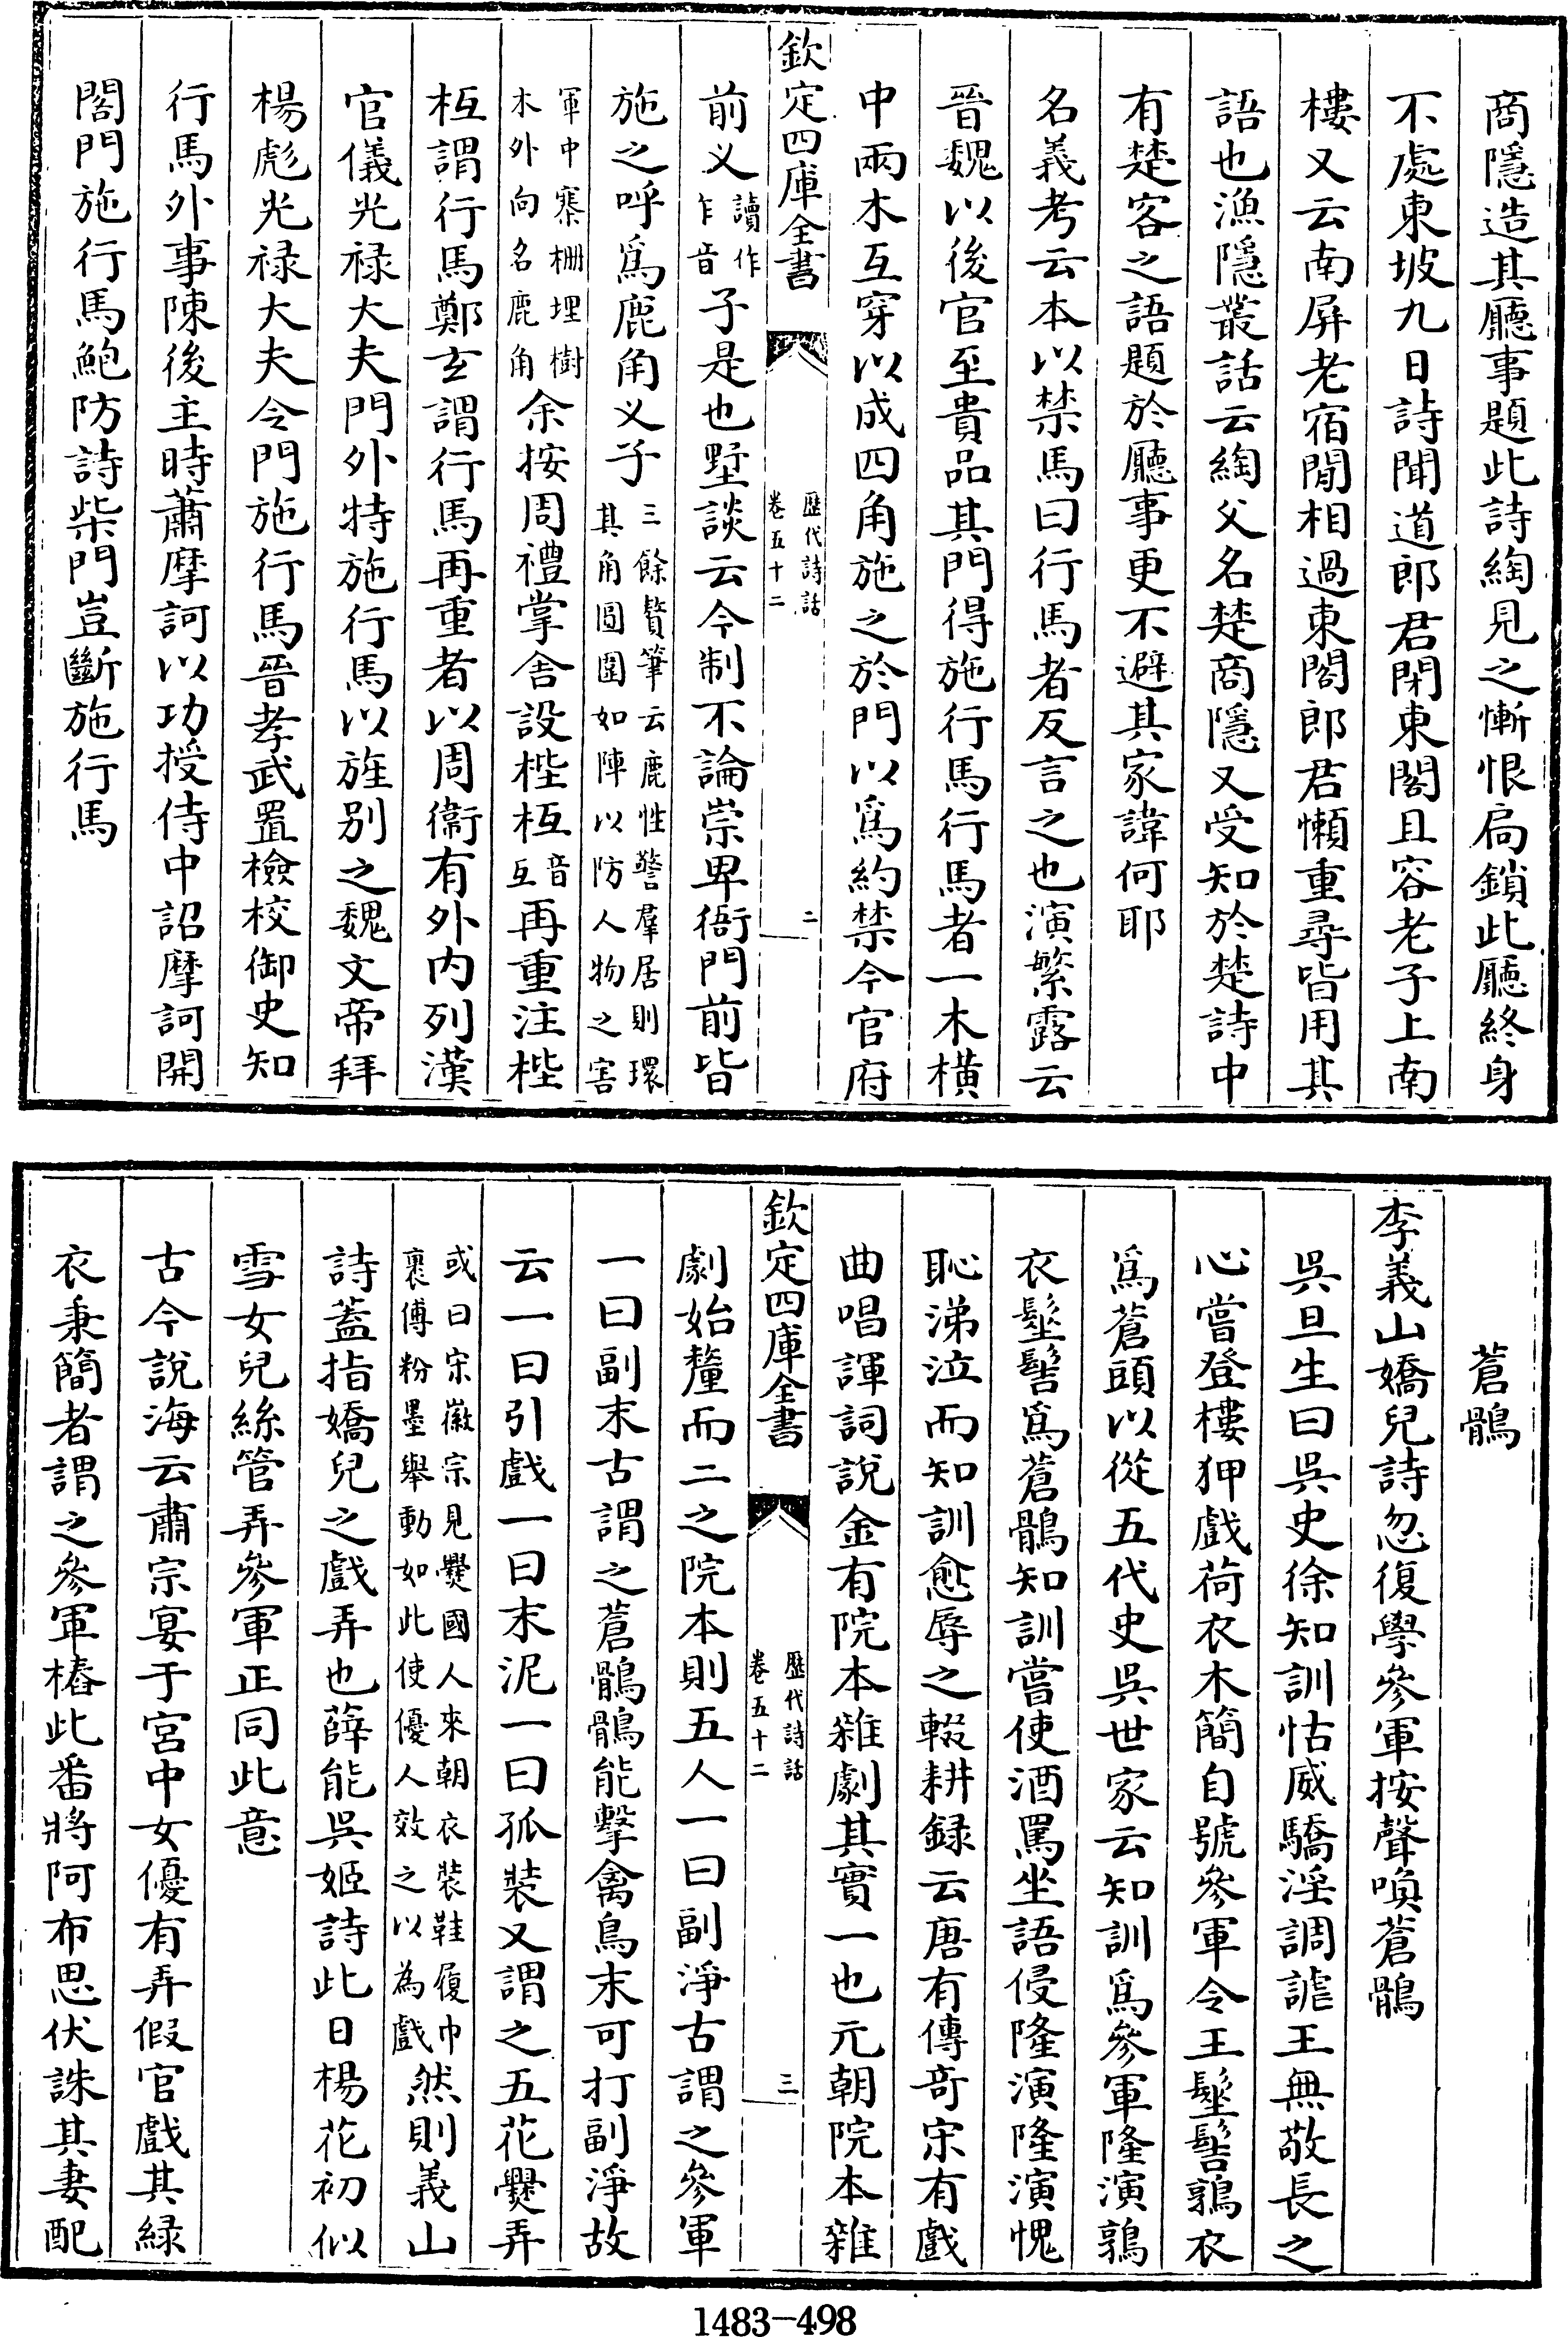 商隱造其廳事題此詩綯見之慚恨扃鎖此廳終身
不處東坡九日詩聞道郎君閉東閣且容老子上南
樓又云南屏老宿閒相過東閣郎君懶重尋皆用其
語也漁隱叢話云綯父名楚商隱又受知於楚詩中
有楚客之語題於廳事更不避其家諱何耶
名義考云本以禁馬曰行馬者反言之也演繁露云
晉魏以後官至貴品其門得施行馬行馬者一木橫
中兩木互穿以成四角施之於門以爲約禁今官府
欽定四庫全書
歷代詩話
卷五十二
二
前义讀作
乍音子是也墅談云今制不論崇卑衙門前皆
施之呼爲鹿角义子三餘贅筆云鹿性警羣居則環
其角圓圍如陣以防人物之害
軍中寨柵埋樹
木外向名鹿角余按周禮掌舍設梐枑音
互再重注梐
枑謂行馬鄭玄謂行馬再重者以周衞有外內列漢
官儀光禄大夫門外特施行馬以旌别之魏文帝拜
楊彪光禄大夫令門施行馬晉孝武置檢校御史知
行馬外事陳後主時蕭摩訶以功授侍中詔摩訶開
閤門施行馬鮑防詩柴門豈斷施行馬
蒼鶻
李義山嬌兒詩忽復學參軍按聲喚蒼鶻
吳旦生曰吳史徐知訓怙威驕淫調謔王無敬長之
心嘗登樓狎戲荷衣木簡自號參軍令王髽髻鶉衣
爲蒼頭以從五代史吳世家云知訓爲參軍隆演鶉
衣髽髻爲蒼鶻知訓嘗使酒罵坐語侵隆演隆演愧
恥涕泣而知訓愈辱之輟耕録云唐有傳竒宋有戲
曲唱諢詞說金有院本雜劇其實一也元朝院本雜
欽定四庫全書
歷代詩話
卷五十二
三
劇始釐而二之院本則五人一曰副淨古謂之參軍
一曰副末古謂之蒼鶻鶻能擊禽鳥末可打副淨故
云一曰引戲一曰末泥一曰孤裝又謂之五花爨弄
或曰宋徽宗見爨國人來朝衣裝鞋履巾
裹傅粉墨舉動如此使優人效之以為戲然則義山
詩蓋指嬌兒之戲弄也薛能吳姬詩此日楊花初似
雪女兒絲管弄參軍正同此意
古今說海云肅宗宴于宮中女優有弄假官戲其緑
衣秉簡者謂之參軍樁此番將阿布思伏誅其妻配
1483-498